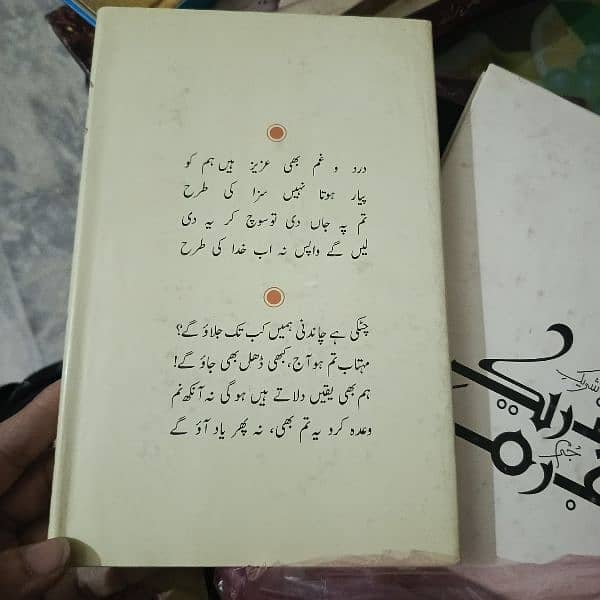 درد و غم بھی عزیز ہیں ہم کو
پیار ہوتا نہیں سزا کی طرح
تم پہ جاں دی تو سوچ کر یہ دی
لیں گے واپس نہ اب خدا کی طرح
چٹکی ہے چاندنی ہمیں کب تک جلاؤ گے؟
مہتاب تم ہو آج، کبھی ڈھل بھی جاؤ گے!
ہم بھی یقیں دلاتے ہیں ہوگی نہ آنکھ نم
وعدہ کرو یہ تم بھی، نہ پھر یاد آؤ گے